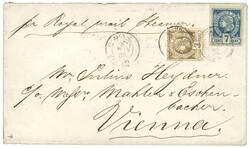 per Royal mail Steamer.
7
Mr. Julius Heydner.
c/o. Messrs. Mahler & Eschen-
bacher.
Vienna.